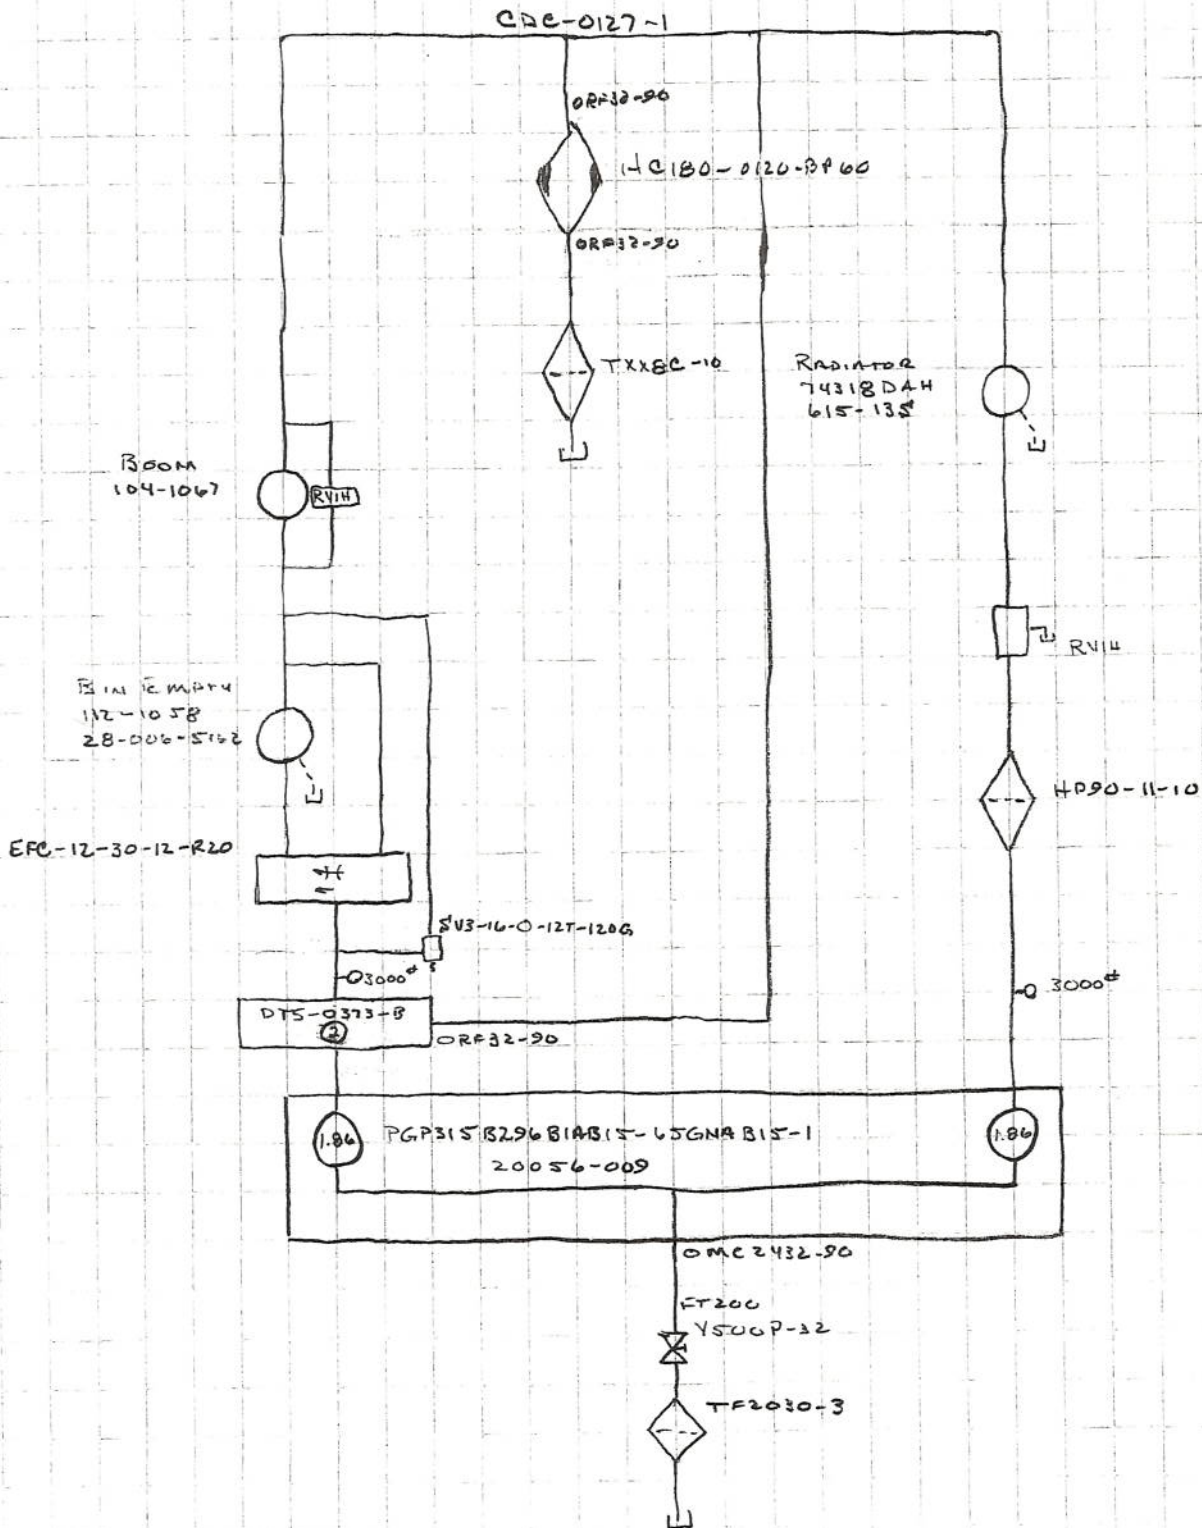 CDC-0127-1
ORF32-90
HC180-0120-BP60
ORF32-90
TXX8C-10
RADIATOR
74318DAH
615-135
BOOM
104-1067
RV1H
RV1H
BIN EMPTY
112-1058
28-006-5162
HP90-11-10
EFC-12-30-12-R20
SV3-16-0-12T-120G
3000#
3000#
DTS-0373-B
2
ORF32-90
1.86
PGP315B296B1AB15-65GNAB15-1
1.86
20056-009
OMC2432-90
FT200
V500P-32
TF2030-3